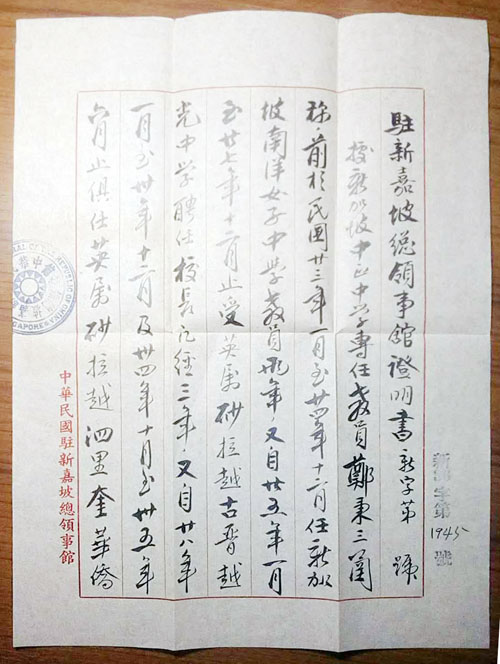 駐新嘉坡總領事館證明書新字第 號
字第 1945 號
按新加坡中正中学專任教員鄭秉三函
称前於民國廿三年一月至廿四年十二月任新加
坡南洋女子中學教員兩年又自廿五年一月
至廿七年十二月止受英屬砂拉越古晋越
光中学聘任校長凡經三年又自廿八年
一月至卅年十二月及卅四年十月至卅五年
六月止俱任英屬砂拉越泗里奎華僑
中華民國駐新嘉坡總領事館